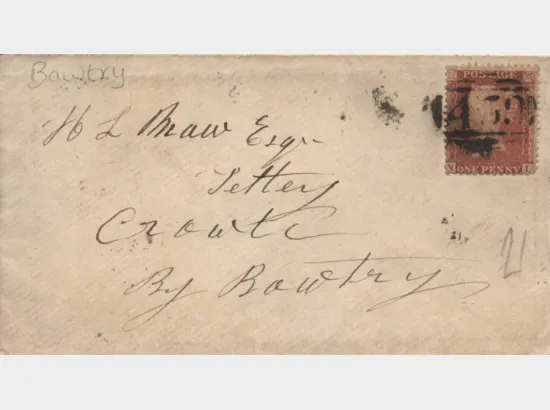 Bawtry
H L Maw Esqr
Tetley
Crowle
By Bawtry
POSTAGE
ONE PENNY
21